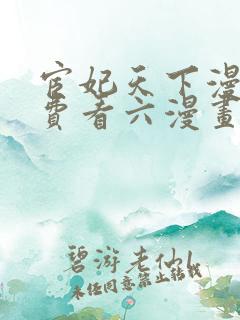 宦妃天下漫
費看六漫畫
碧游老仙l
未经同意禁止转载